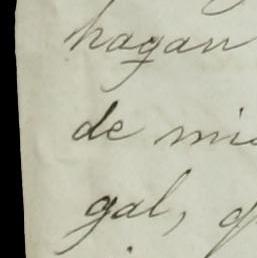 hagan
de mis
gal,